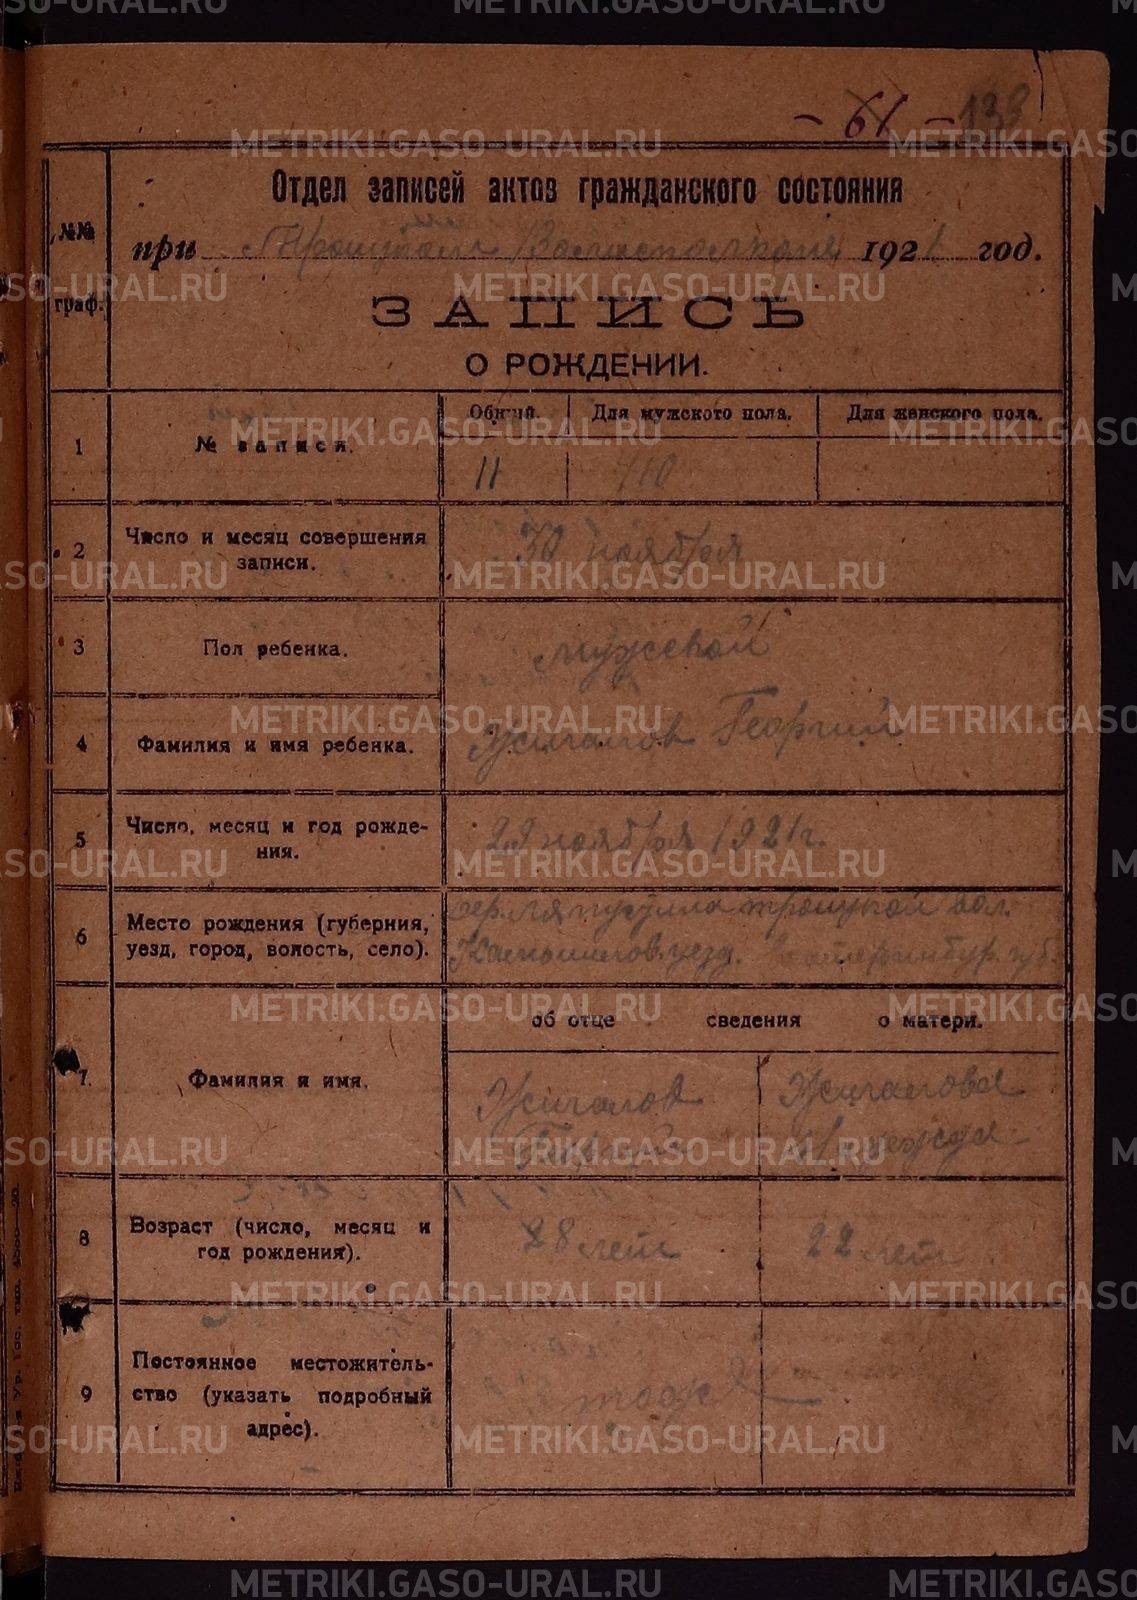 - 61 - 138
Отдел записей актов гражданского состояния
№№ граф.
при Троицком Волисполкоме 1921 год.
ЗАПИСЬ
О РОЖДЕНИИ.
Общий. Для мужского пола. Для женского пола.
1 № записи. 11
2 Число и месяц совершения записи. 30 ноября
3 Пол ребенка. мужской
4 Фамилия и имя ребенка. Жигалов Георгий
5 Число, месяц и год рождения. 29 ноября 1921 г.
6 Место рождения (губерния, уезд, город, волость, село).
троицкой вол.
Камышловск. уезд. Екатеринбур. губ.
об отце сведения о матери.
7. Фамилия и имя.
Жигалов Жигалова
Надежда
8 Возраст (число, месяц и год рождения). 28 лет 22 лет
9 Постоянное местожительство (указать подробный адрес). тоже
METRIKI.GASO-URAL.RU